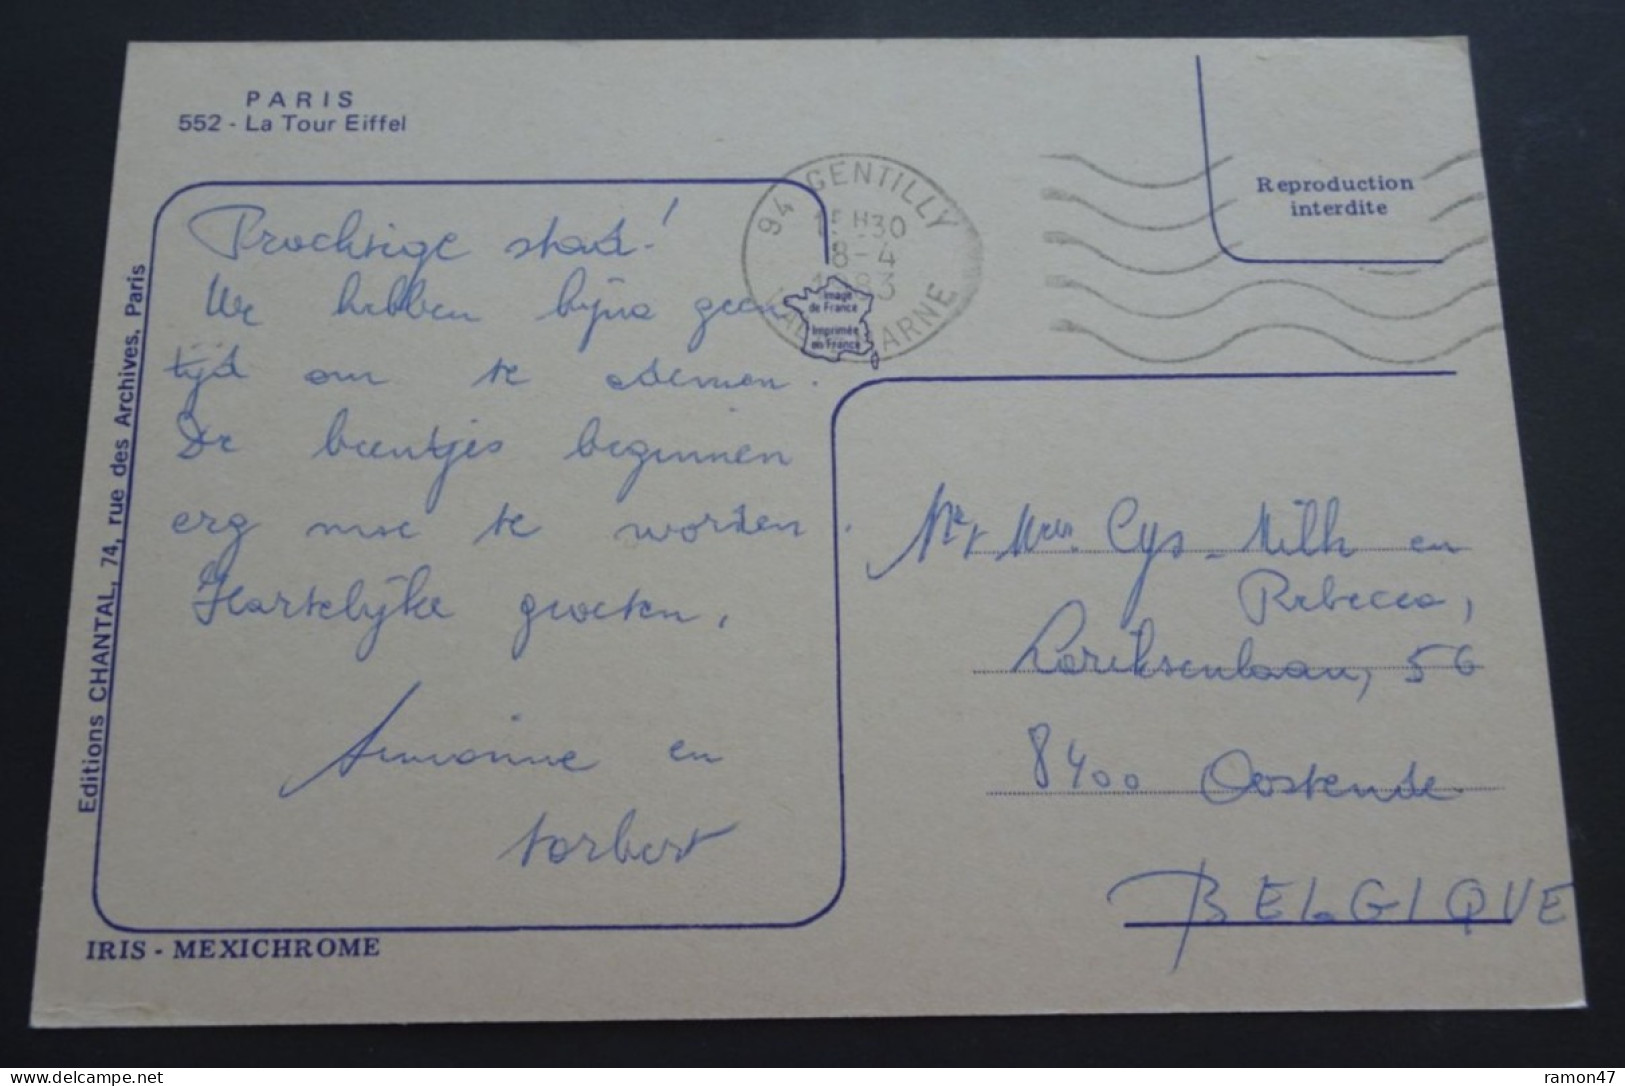 PARIS
552 - La Tour Eiffel
Prachtige stad!
We hebben bijna geen
tijd om te ademen.
De beentjes beginnen
erg moe te worden.
Hartelijke groeten,
en
Norbert
94 GENTILLY
15H30
8-4
1983
VAL DE MARNE
Image
de France
Imprimée
en France
Reproduction
interdite
Mr & Mevr. Cys - Milh en
Rebecca,
Lariksenlaan, 56
8400 Oostende
BELGIQUE
Editions CHANTAL, 74, rue des Archives. Paris
IRIS - MEXICHROME
ramon47